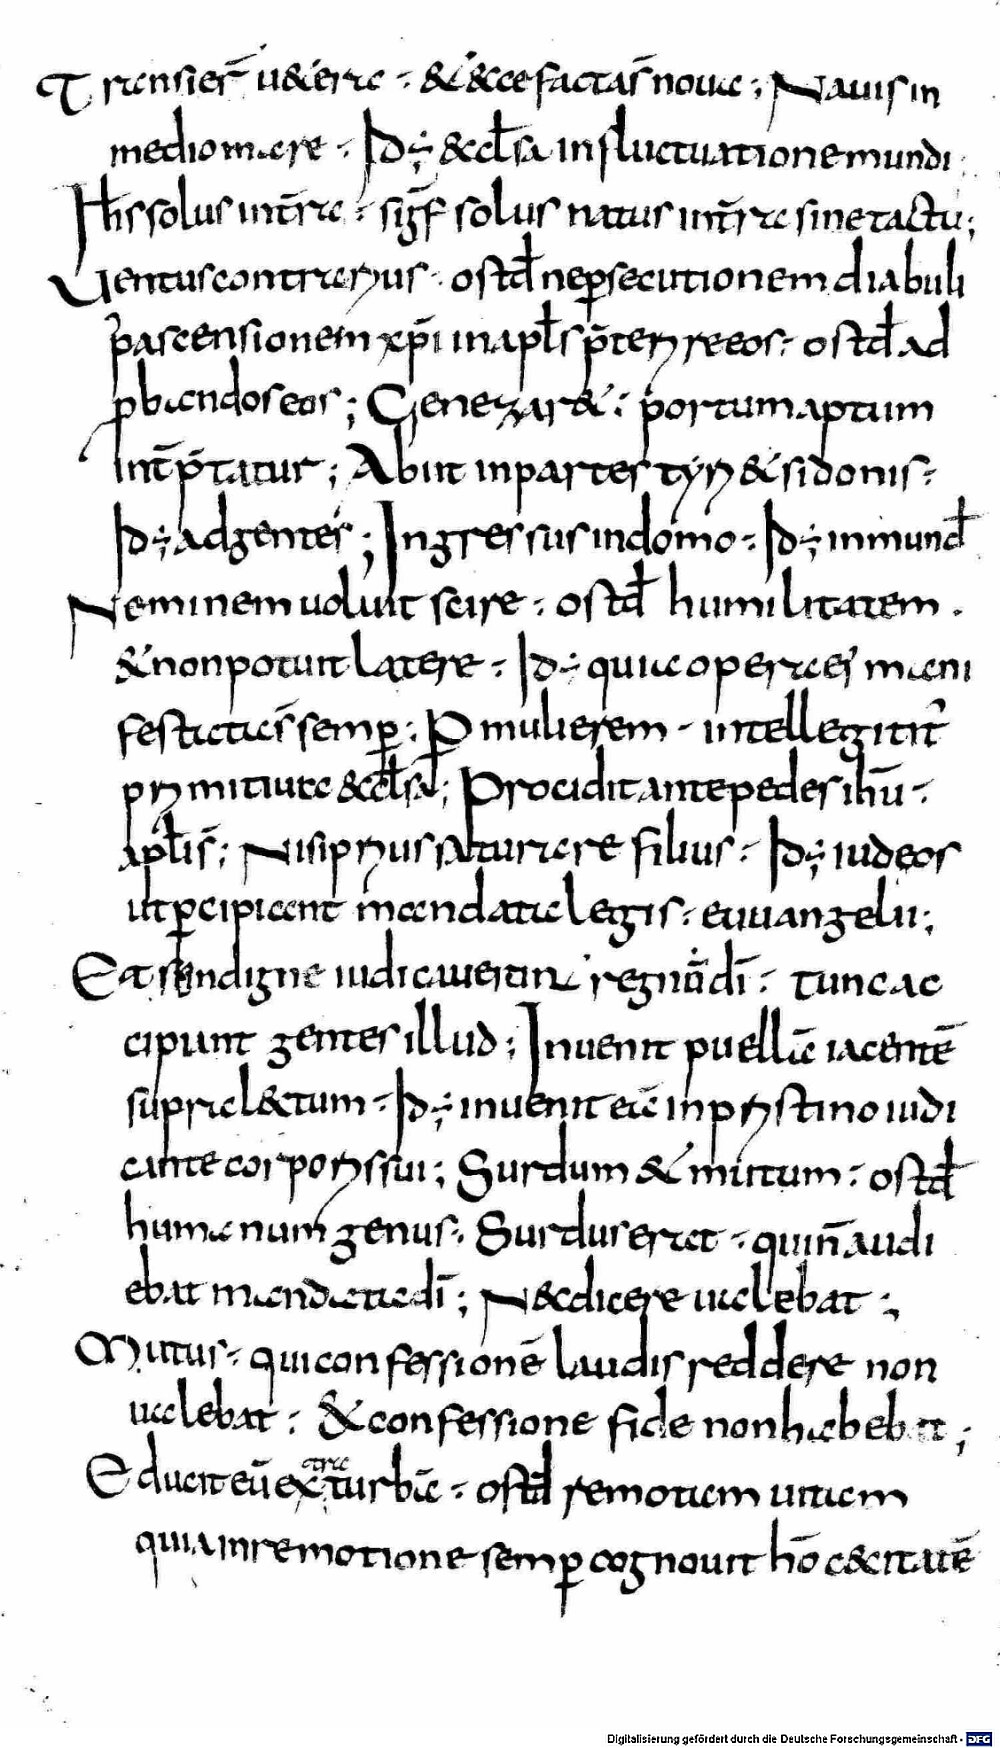 Transier̄ uetera · et ecce facta s̄ nova ; Navis in
medio mare · Id÷ &ccl̄sa in fluctuatione mundi
Ihs solus in tr̄ra · sigf̄ solus natus in tr̄ra sine tactu ;
Uentus contrarius · ostđ ne p̱secutionem diabuli
p̱ ascensionem xp̄i in apl̄s p̄terireeos · ostđ ad
p̱bandos eos ; Genezar& · portum aptum
Int̄p̄tatur ; Abiit in partes tyri & sidonis ·
Id÷ ad gentes ; Ingressus in domo · Id÷ in mund̄
Neminem uoluit scire · ostđ humilitatem .
& non potuit latere · Id÷ quia opera ei mani
festata s̄ semp̱ ; P mulierem · intellegitr̄
primitiua &ccl̄sa ; Procidit ante pedes ihū ·
apl̄is ; Nisi prius saturare filius · Id÷ iudeos
ut p̱cipiant mandata legis · euuangelii ;
Et sendigne iudicauerunt regnū dī · tunc ac
cipiunt gentes illud ; Inuenit puellā iacentē
supra lectum · Id÷ inuenit eā in pristino iudi
cante corporis sui ; Surdum & mutum · ostđ
humanum genus · Surdus erat · qui n̄ audi
ebat mandata dī ; Nec dicere ualebat ;
Mutus · qui confessionē laudis reddere non
ualebat · & confessione fide non habebat ;
Educit eū extra turbā · ostđ remotam uitam
quia in remotione semp̱ cognouit hō c&citatē
Digitalisierung gefördert durch die Deutsche Forschungsgemeinschaft - DFG